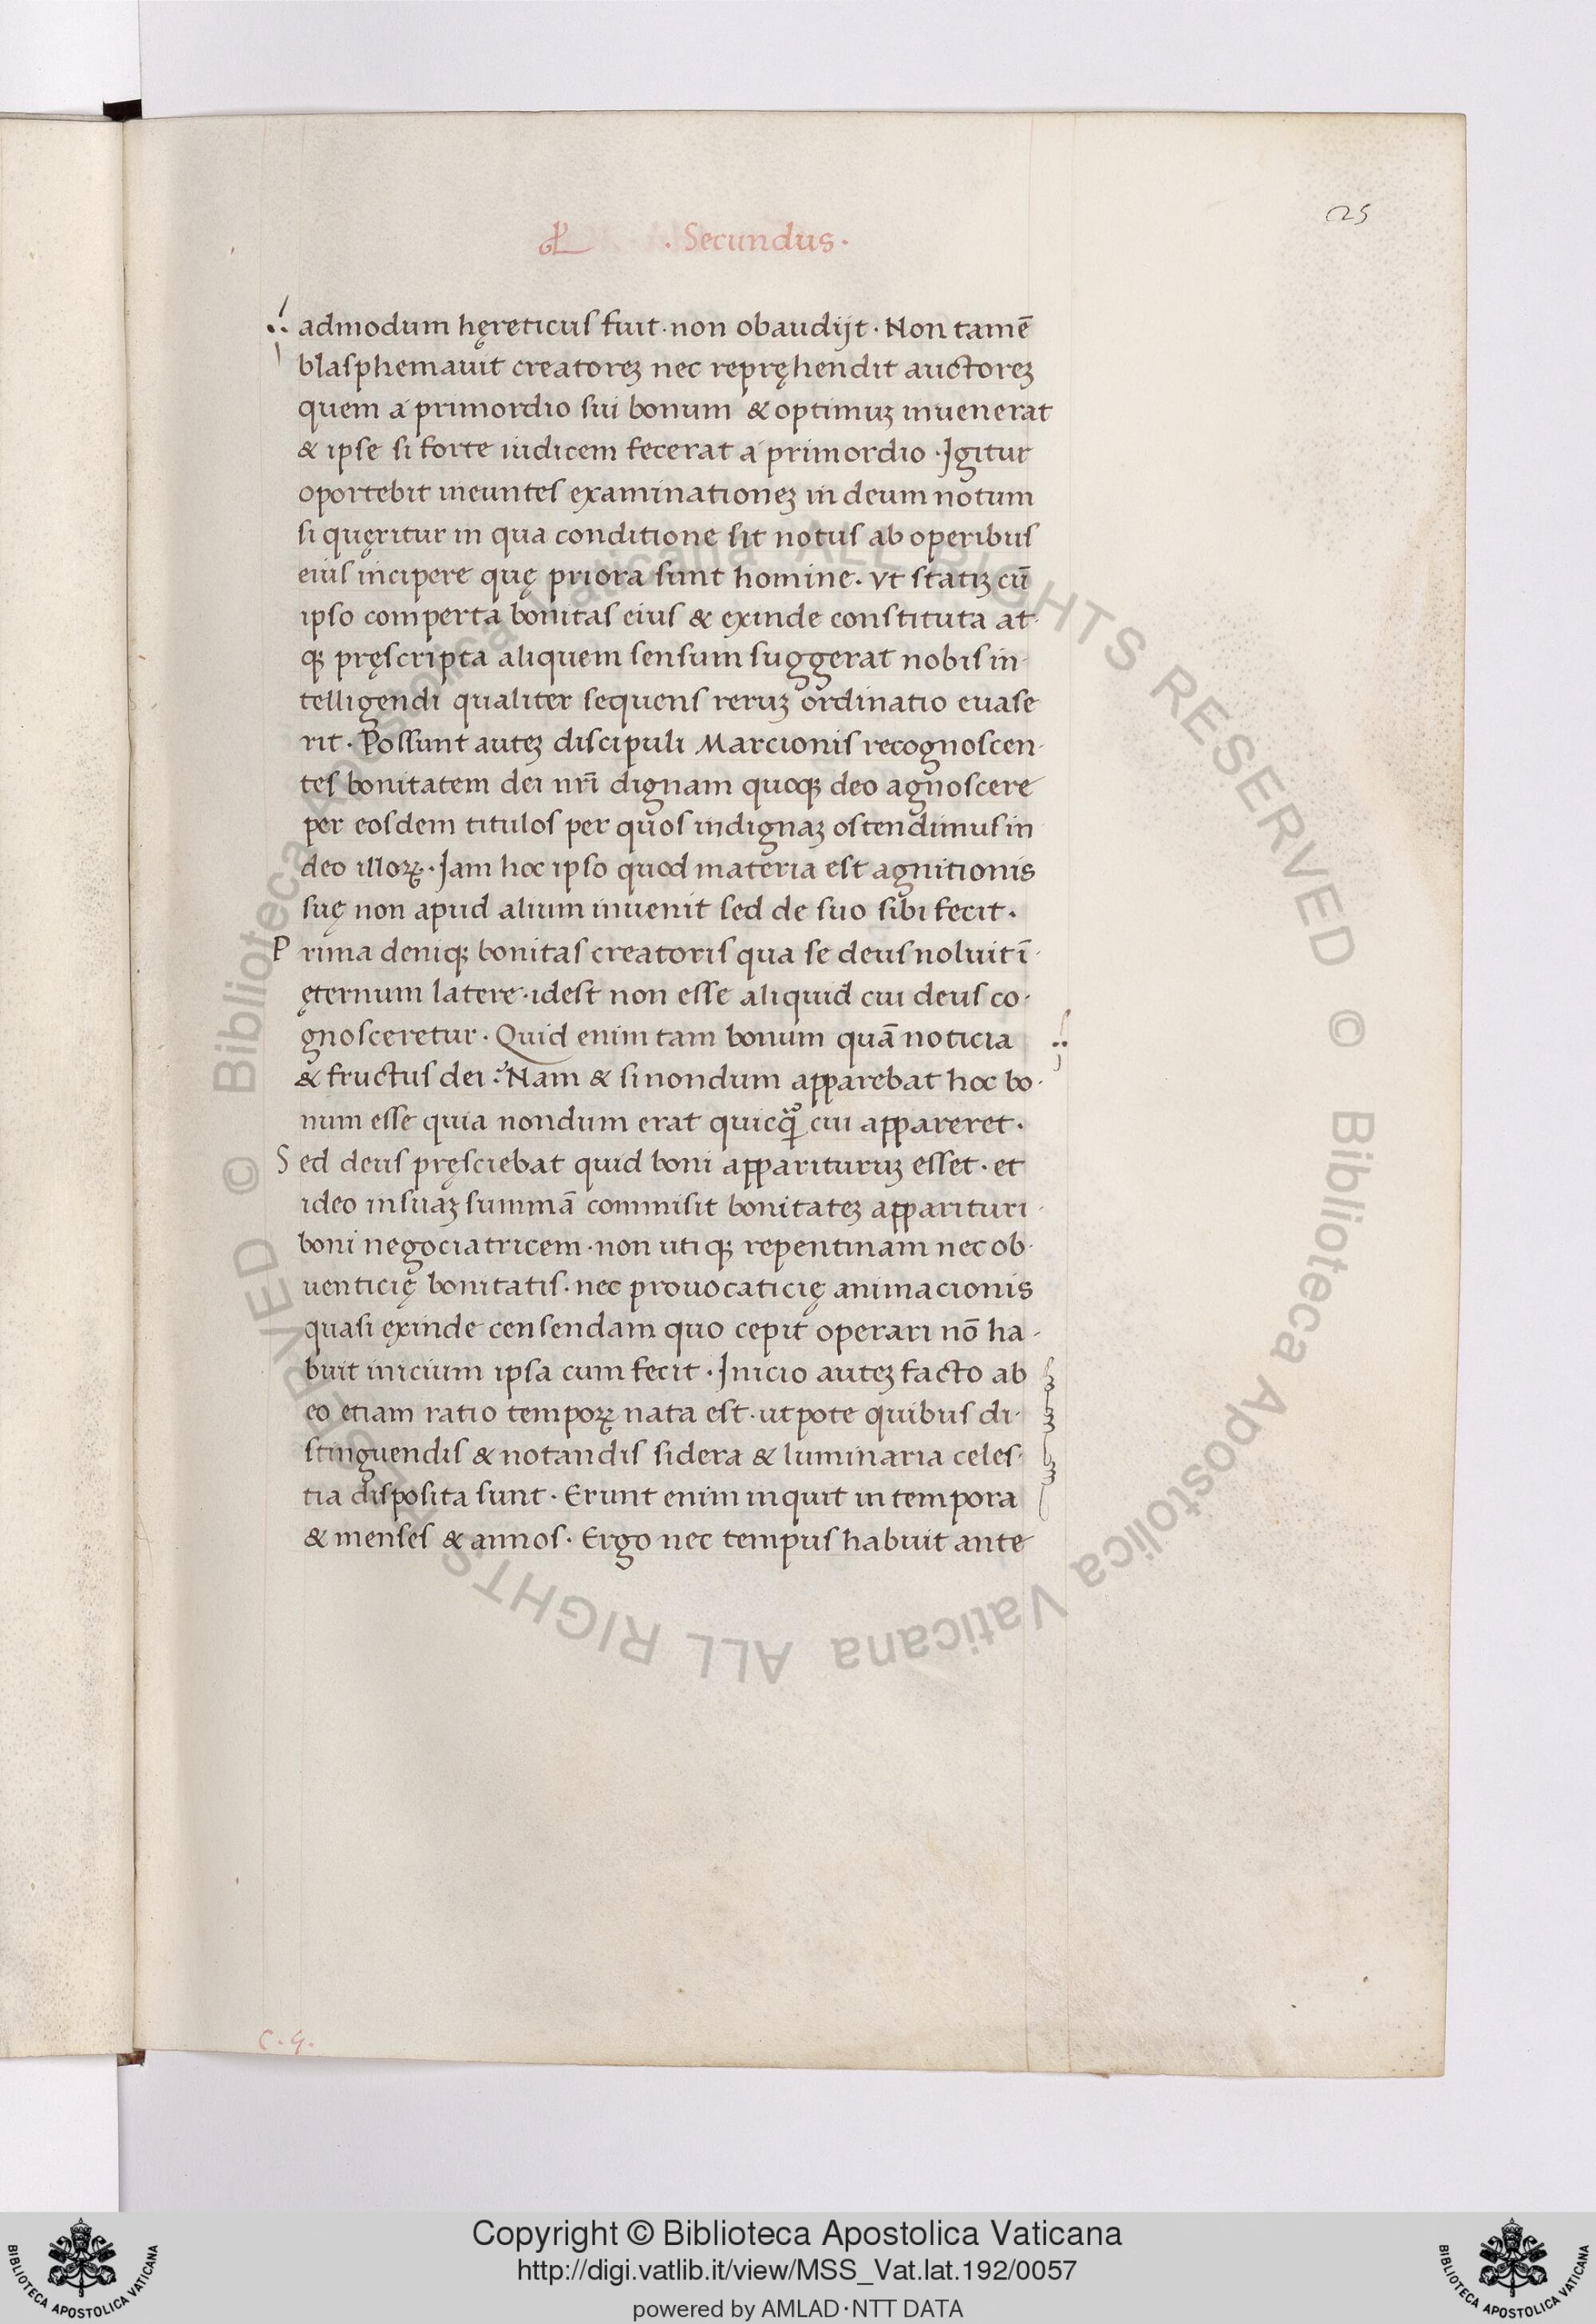 · Secundus ·
25
admodum hęreticus fuit · non obaudijt · Non tamē
blasphemauit creatoreꝫ nec repręhendit auctoreꝫ
quem á primordio sui bonum & optimuꝫ inuenerat
& ipse si forte iudicem fecerat á primordio · Igitur
oportebit ineuntes examinationeꝫ in deum notum
si quęritur in qua conditione sit notus ab operibus
eius incipere quę priora sunt homine · vt statiꝫ cū
ipso comperta bonitas eius & exinde constituta at-
qꝫ pręscripta aliquem sensum suggerat nobis in-
telligendi qualiter sequens reruꝫ ordinatio euase
rit · Possunt auteꝫ discipuli Marcionis recognoscen-
tes bonitatem dei nrī dignam quoqꝫ deo agnoscere
per eosdem titulos per quos indignaꝫ ostendimus in
deo illoꝝ · Iam hoc ipso quod materia est agnitionis
suę non apud alium inuenit sed de suo sibi fecit ·
Prima deniqꝫ bonitas creatoris qua se deus noluit ī-
ęternum latere · idest non esse aliquid cui deus co-
gnosceretur · Quid enim tam bonum quā noticia
& fructus dei? Nam & si nondum apparebat hoc bo-
num esse quia nondum erat quicqͫ cui appareret ·
Sed deus pręsciebat quid boni apparituruꝫ esset · et
ideo in suaꝫ summā commisit bonitateꝫ apparituri-
boni negociatricem · non utiqꝫ repentinam nec ob-
uenticię bonitatis · nec prouocaticię animacionis
quasi exinde censendam quo cepit operari nō ha-
buit inicium ipsa cum fecit · Inicio auteꝫ facto ab
eo etiam ratio tempoꝝ nata est · utpote quibus di-
stinguendis & notandis sidera & luminaria celes-
tia disposita sunt · Erunt enim inquit in tempora
& menses & annos · Ergo nec tempus habuit ante
C. 9.
Copyright © Biblioteca Apostolica Vaticana
http://digi.vatlib.it/view/MSS_Vat.lat.192/0057
powered by AMLAD·NTT DATA
© Biblioteca Apostolica Vaticana ALL RIGHTS RESERVED
© Biblioteca Apostolica Vaticana ALL RIGHTS RESERVED
BIBLIOTECA APOSTOLICA VATICANA
BIBLIOTECA APOSTOLICA VATICANA